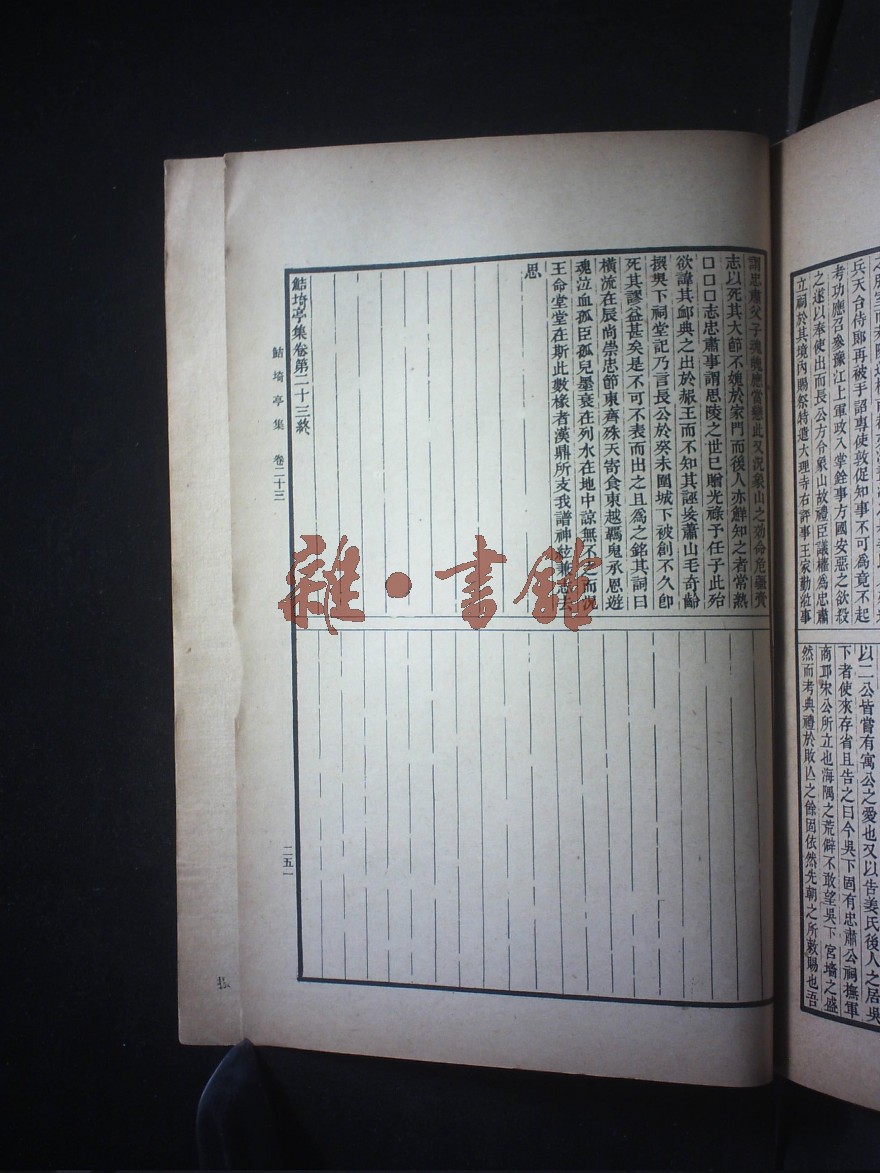 之遂以奉使出而長公方令象山故禮臣議權為忠肅
立祠於其境內賜祭特遣大理寺右評事王家勤涖事
以二公皆嘗有寓公之愛也又以告姜氏後人之居吳
下者使來存省且告之曰今吳下固有忠肅公祠撫軍
商邱宋公所立也海隅之荒僻不敢望吳下宮墻之盛
然而考典禮於敗亾之餘固依然先朝之所敕賜也吾
謂忠肅父子魂魄應當戀此又況象山之効命危疆賫
志以死其大節不媿於家門而後人亦鮮知之者常熟
□□□志忠肅事謂思陵之世已贈光祿予任子此殆
欲諱其卹典之出於赧王而不知其誣矣蕭山毛奇齡
撰吳下祠堂記乃言長公於癸未圍城下被創不久卽
死其謬益甚矣是不可不表而出之且爲之銘其詞曰
橫流在辰尚崇忠節東齊殊天寄食東越羈鬼承恩遊
魂泣血孤臣孤兒墨衰在列水在地中諒無不之而況
王命堂堂在斯此數椽者漢鼎所支我譜神絃兼志去
思
鮚埼亭集卷第二十三終
鮚埼亭集 卷二十三
二五一
雜·書館